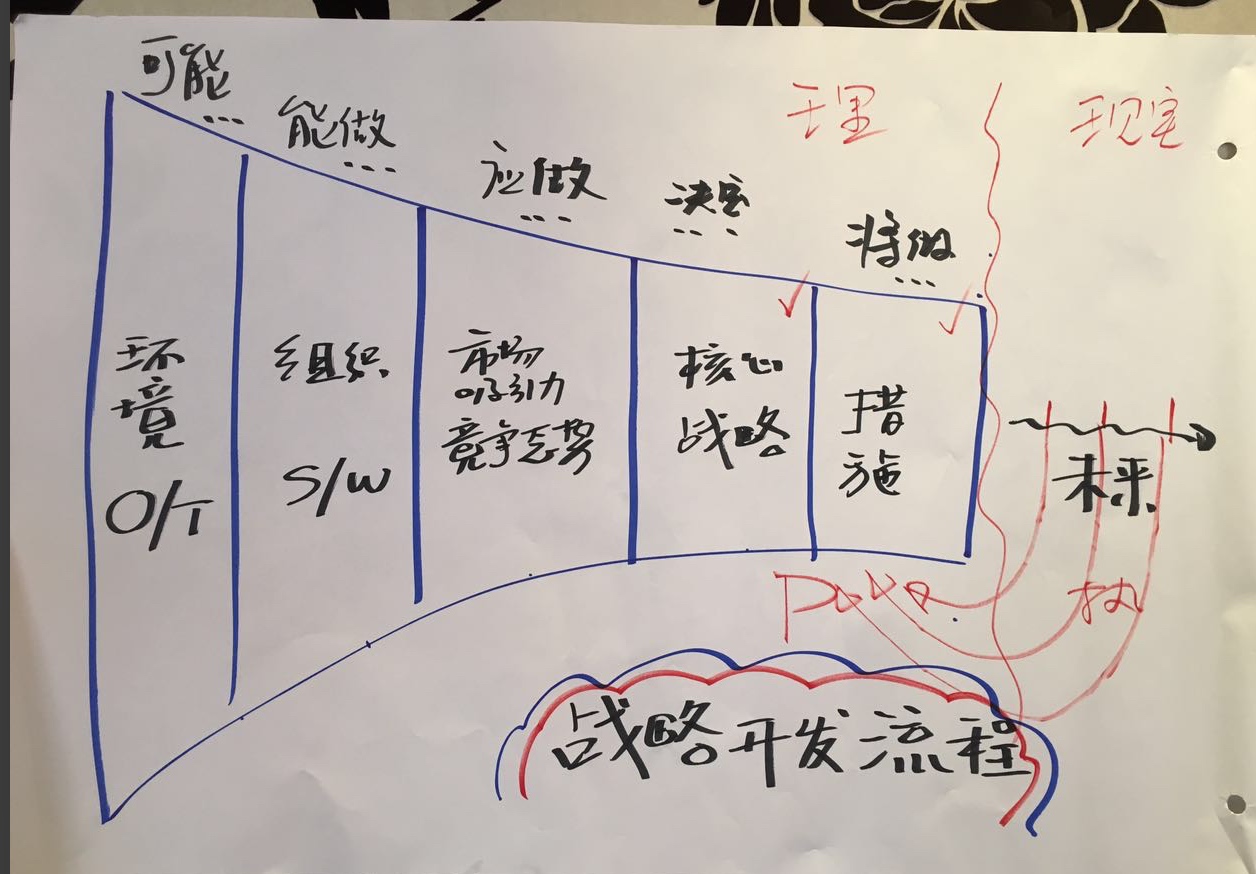 可能
...
能做
...
应做
...
决定
...
将做
...
现实
环
境
O/T
组织
S/W
市场
吸引力
竞争态势
核心
战略
措
施
未来
执
战略开发流程